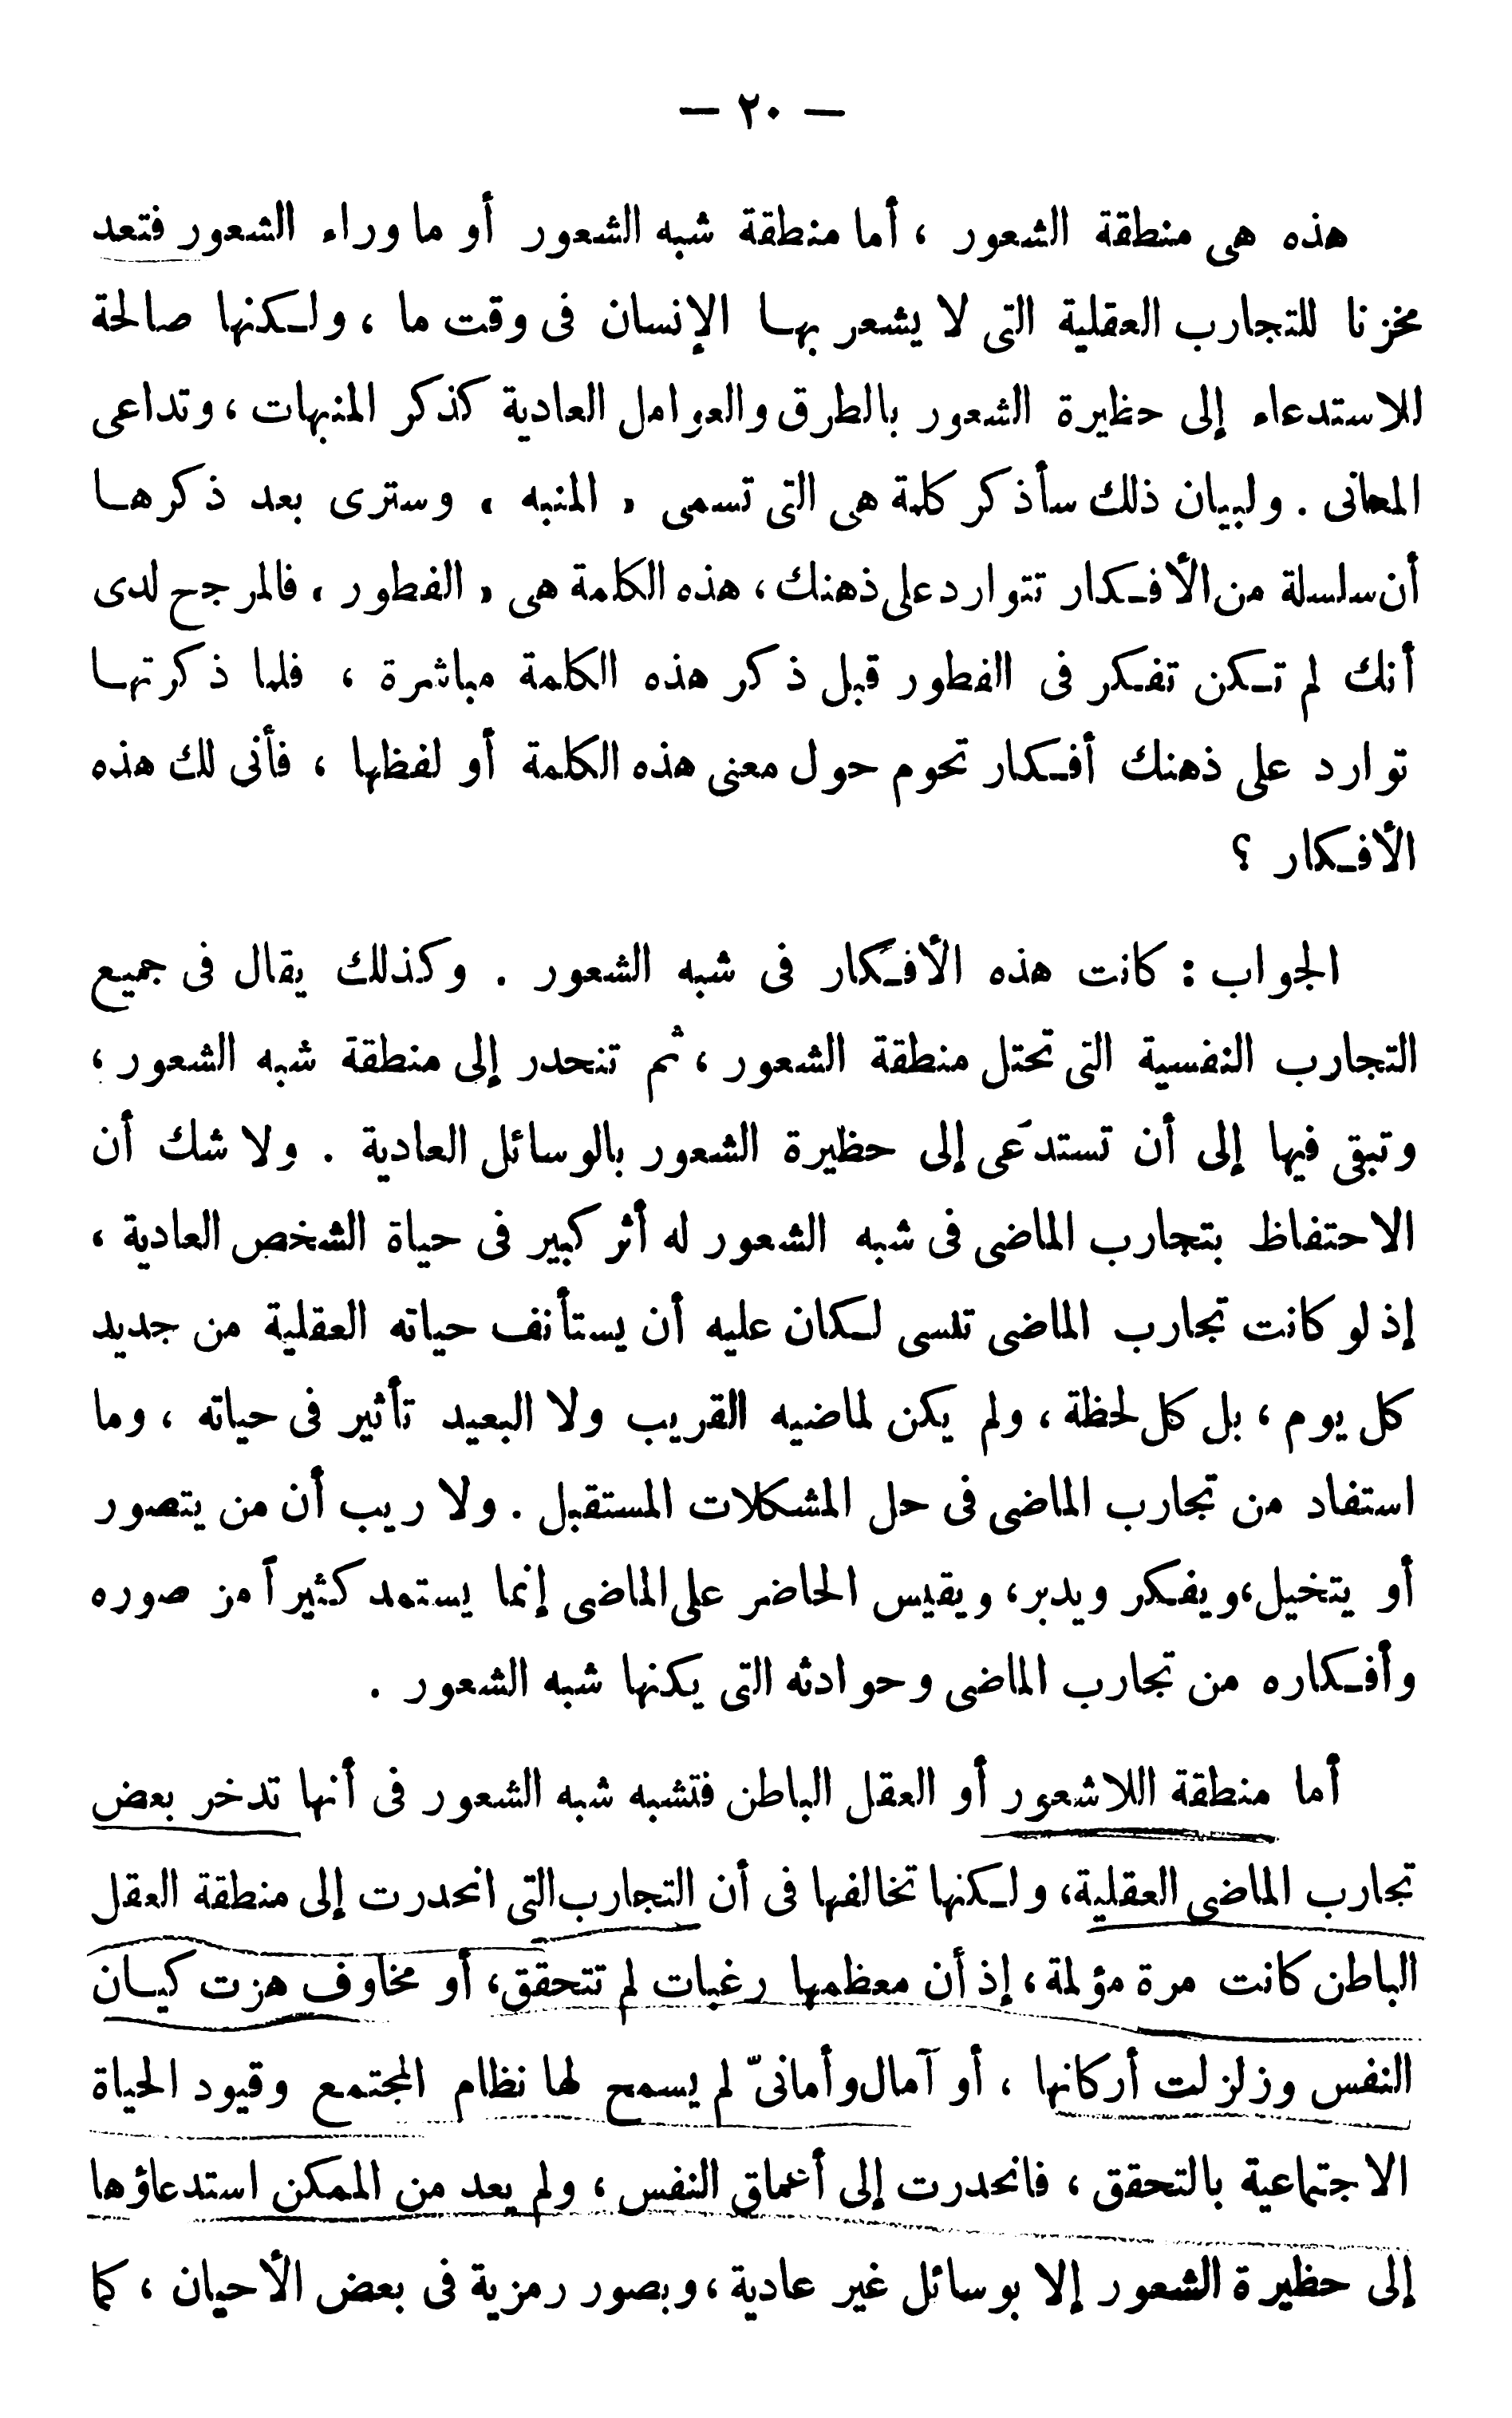 — ٢٠ —
هذه هى منطقة الشعور ، أما منطقة شبه الشعور أو ما وراء الشعور فتعد
مخزنا للتجارب العقلية التى لا يشعر بها الإنسان فى وقت ما ، ولكنها صالحة
للاستدعاء إلى حظيرة الشعور بالطرق والعوامل العادية كذكر المنبهات ، وتداعى
المعانى . ولبيان ذلك سأذكر كلمة هى التى تسمى « المنبه » وسترى بعد ذكرها
أن سلسلة من الأفكار تتوارد على ذهنك ، هذه الكلمة هى « الفطور » فالمرجح لدى
أنك لم تكن تفكر فى الفطور قبل ذكر هذه الكلمة مباشرة ، فلما ذكرتها
توارد على ذهنك أفكار تحوم حول معنى هذه الكلمة أو لفظها ، فأنى لك هذه
الأفكار ؟
الجواب : كانت هذه الأفكار فى شبه الشعور . وكذلك يقال فى جميع
التجارب النفسية التى تحتل منطقة الشعور ، ثم تنحدر إلى منطقة شبه الشعور ،
وتبقى فيها إلى أن تستدَعى إلى حظيرة الشعور بالوسائل العادية . ولا شك أن
الاحتفاظ بتجارب الماضى فى شبه الشعور له أثر كبير فى حياة الشخص العادية ،
إذ لو كانت تجارب الماضى تنسى لكان عليه أن يستأنف حياته العقلية من جديد
كل يوم ، بل كل لحظة ، ولم يكن لماضيه القريب ولا البعيد تأثير فى حياته ، وما
استفاد من تجارب الماضى فى حل المشكلات المستقبل . ولا ريب أن من يتصور
أو يتخيل ، ويفكر ويدبر ، ويقيس الحاضر على الماضى إنما يستمد كثيراً من صوره
وأفكاره من تجارب الماضى وحوادثه التى يكنها شبه الشعور .
أما منطقة اللاشعور أو العقل الباطن فتشبه شبه الشعور فى أنها تدخر بعض
تجارب الماضى العقلية ، ولكنها تخالفها فى أن التجارب التى انحدرت إلى منطقة العقل
الباطن كانت مرة مؤلمة ، إذ أن معظمها رغبات لم تتحقق ، أو مخاوف هزت كيان
النفس وزلزلت أركانها ، أو آمال وأمانىّ لم يسمح لها نظام المجتمع وقيود الحياة
الاجتماعية بالتحقق ، فانحدرت إلى أعماق النفس ، ولم يعد من الممكن استدعاؤها
إلى حظيرة الشعور إلا بوسائل غير عادية ، وبصور رمزية فى بعض الأحيان ، كما